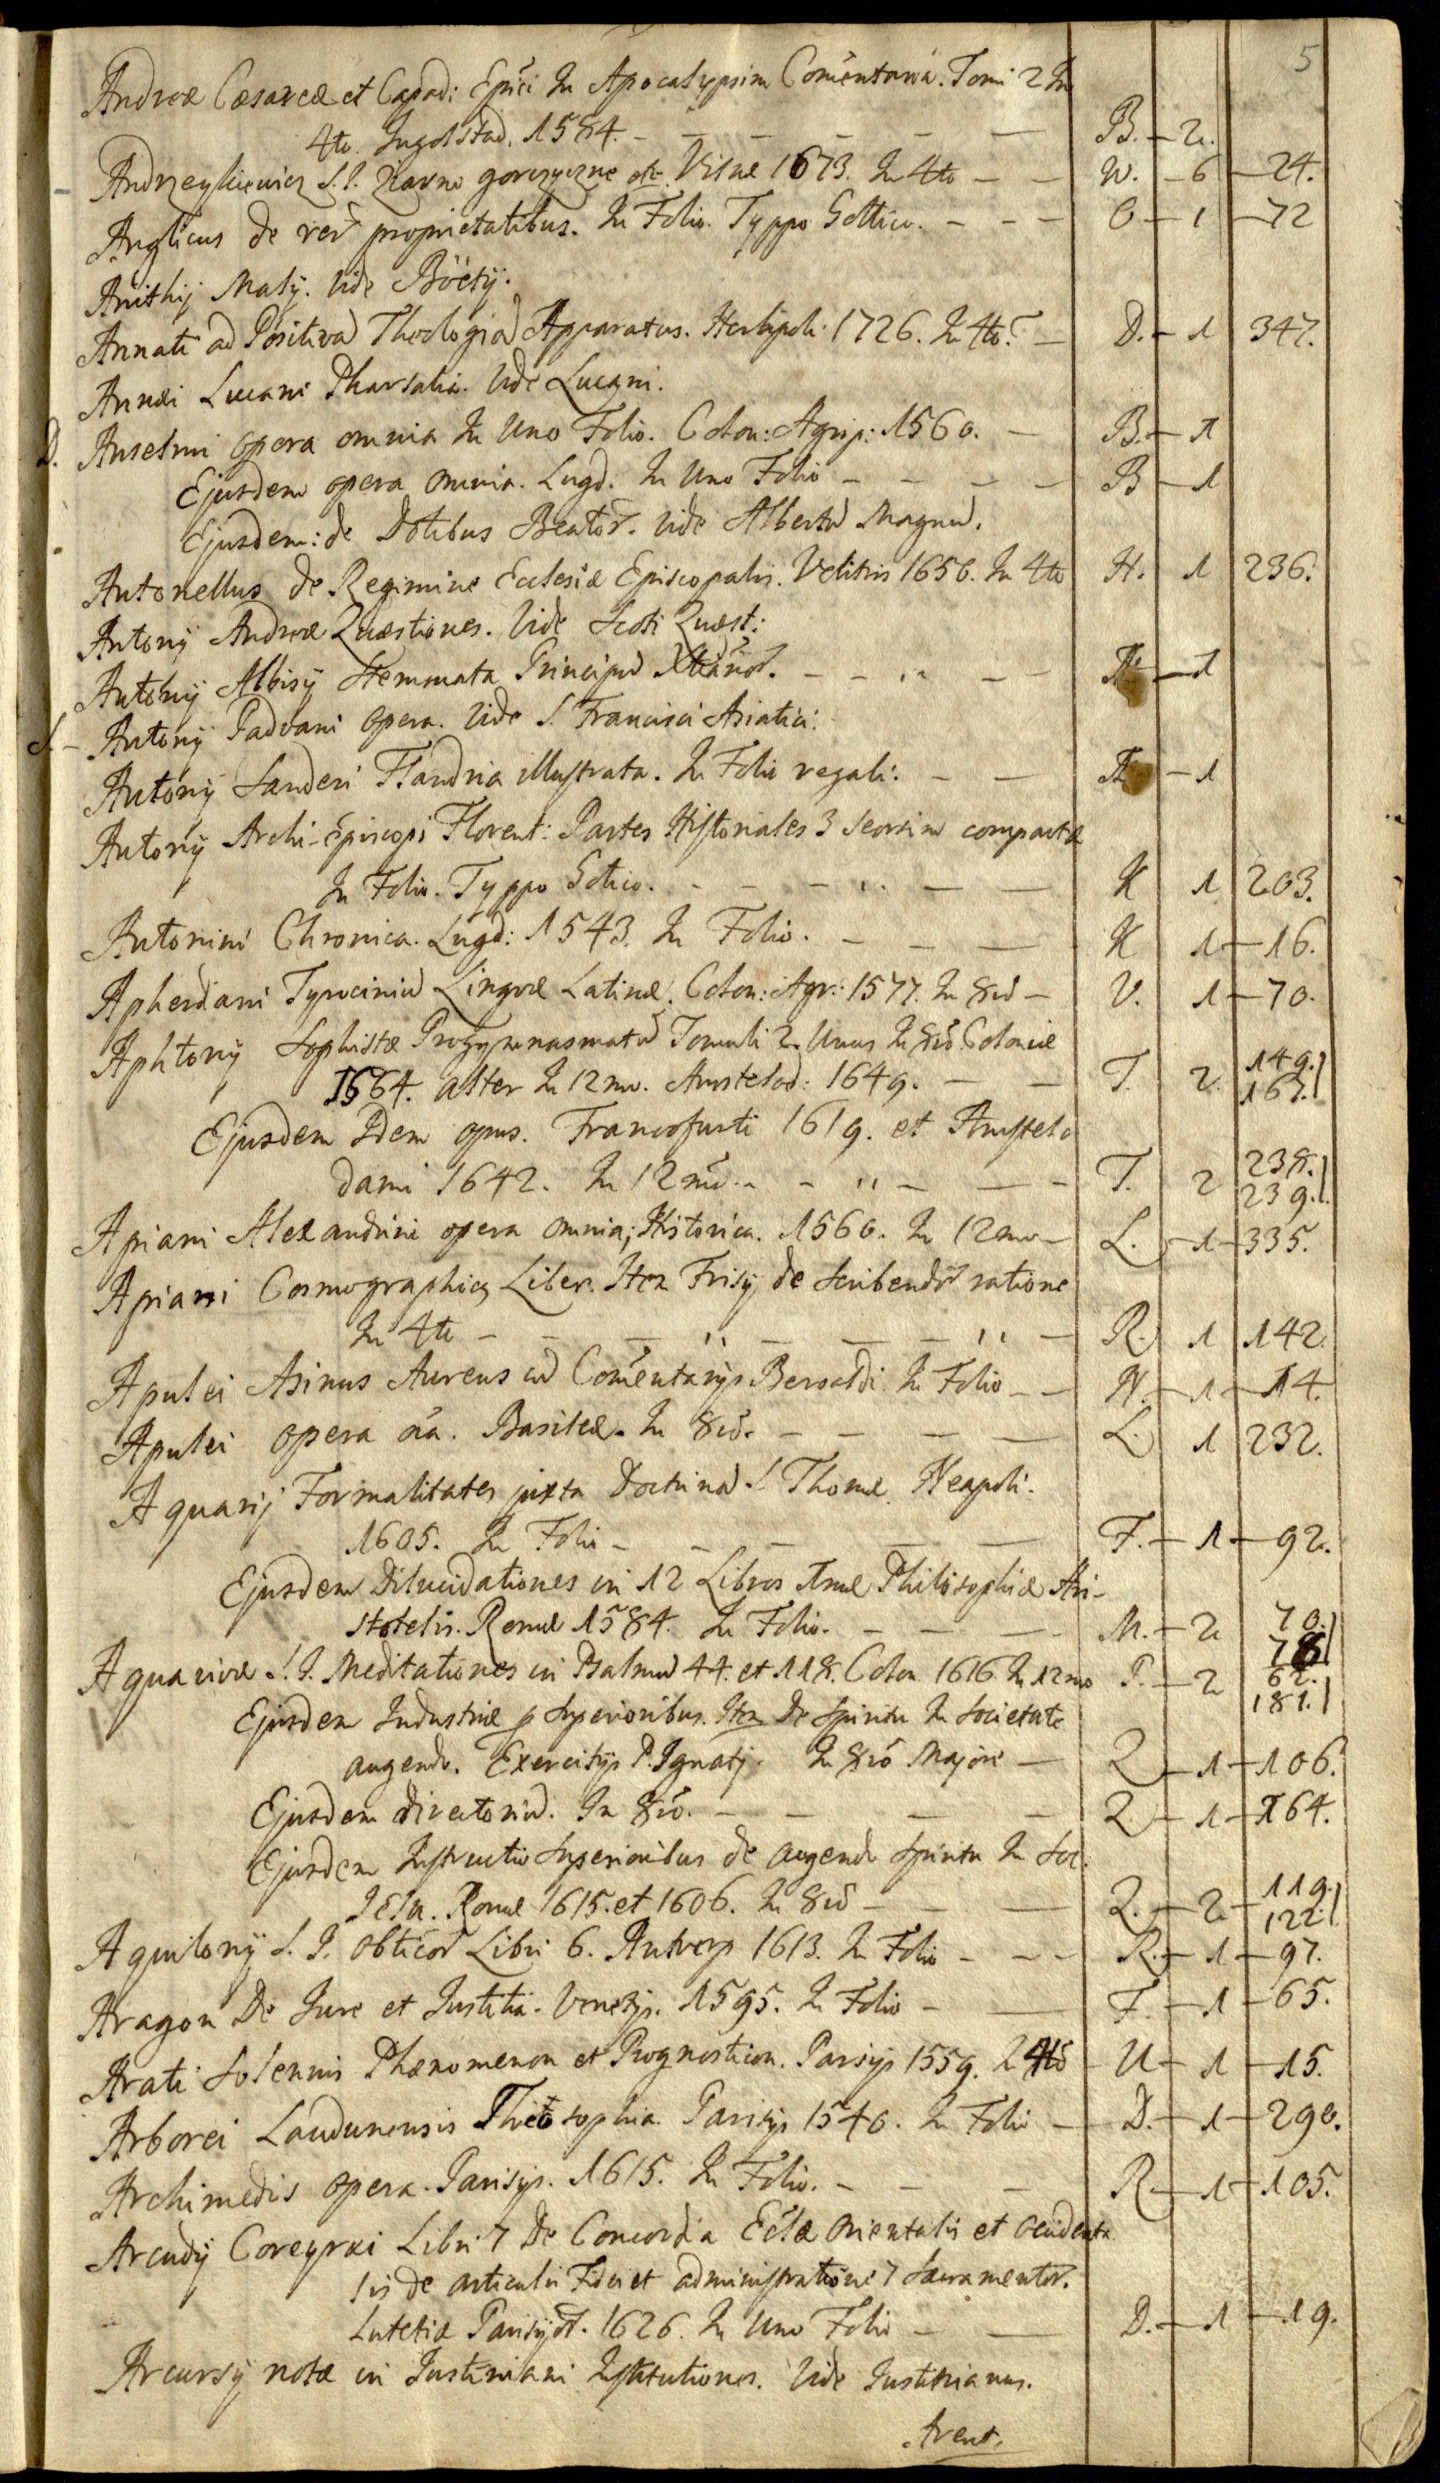 5
Andreæ Cæsareæ et Capad: Epĩci In Apocalypsim Comẽntaria. Tomi 2 In
4to. Ingolstad. 1584. - - - - - - B. - 2.
Andrzeykiewicz S.J. Ziarno gorczyczne etc. Vilnæ 1673. In 4to - - W. - 6 - 24.
Anglicus de rer̃ proprietatibus. In Folio. Typpo Gottico. - - - O - 1 - 72
Anithij Malÿ. Vide Böetÿ.
Annati ad Positivã Theologiã Apparatus. Herbipoli: 1726. In 4to. - D. - 1 347.
Annæi Lucani Pharsalia. Vide Lucani.
D. Anselmi opera omnia In Uno Folio. Colon: Agrip: 1560. - B. - 1
Ejusdem opera omnia. Lugd. In Uno Folio - - - - B - 1
Ejusdem: de Dotibus Beator̃. Vide Albertũ Magnũ.
Antonellus de Regimine Ecclesiæ Episcopalis. Velitris 1656. In 4to H. 1 236.
Antonÿ Andreæ Quæstiones. Vide Scoti Quæst:
Antonÿ Albisÿ Stemmata Principũ Xtianor̃. - - .. - - - 1
S. - Antonÿ Padvani opera. Vide S. Francisci Asiatici.
Antonÿ Sanderi Flandria illustrata. In Folio regali. - - - 1
Antonÿ Archi-Episcopi Florent: Partes Historiales 3 seorsim compactæ
In Folio. Typpo Gotico. - - - .. - - K 1 203.
Antonini Chronica. Lugd: 1543. In Folio. - - - - K 1 - 16.
Apherdiani Tyrociniũ Lingvæ Latinæ. Colon: Agr: 1577. In 8vo - V. 1 - 70.
Aphtonÿ Sophistæ Progymnasmatũ Tomuli 2. Unus In 8vo. Coloniæ
1664. alter In 12mo. Amstelod: 1649. - - T. 2. 149.
167.
Ejusdem Idem opus. Francofurti 1619. et Amstelo
dami 1642. In 12mo. - - ,, - - - T. 2 238.
239.
Apiani Alexandrini opera omnia; Historica. 1560. In 12mo - L. - 1 - 335.
Apiani Cosmographicq Liber. Item Frisÿ de scribendor̃ ratione
In 4to - - - ,, - - - ,, - R. 1 142.
Apulei Asinus Aureus cũ Comẽntarÿs Beroaldi. In Folio - - N. - 1 - 14.
Apulei opera oĩa. Basileæ. In 8vo. - - - - L. 1 232.
Aquarij Formalitates juxta Doctrinã S. Thomæ. Neapoli:
1605. In Folio - - - - - F. - 1 - 92.
Ejusdem Dilucidationes in 12 Libros Primæ Philosophiæ Ari-
stotelis. Romæ 1584. In Folio. - - - - M. - 2 70.
78
Aquavivæ S.J. Meditationes in Psalmũ 44. et 118. Colon. 1616. In 12mo P. - 2 62.
181.
Ejusdem Industriæ p Superioribus. Item De Spiritu In Societate
augendo. Exercitÿs P. Ignatÿ. In 8vo Majori - Q - 1 - 106.
Ejusdem directoriũ. In 8vo. - - - - Q - 1 - 164.
Ejusdem Instructio Superioribus de augendo spiritu In Soc.
Jesu. Romæ 1615. et 1606. In 8vo - - - Q. - 2 - 119.
122.
Aquilonÿ S.J. obticor̃ Libri 6. Antverp 1613. In Folio - - - R. - 1 - 97.
Aragon De Jure et Justitia. Venetÿs. 1595. In Folio - - F. - 1 - 65.
Arati Solennis Phænomenon et Prognosticon. Parisÿs 1559. In 4to - U - 1 - 15.
Arborei Laudunensis Theosophia. Parisÿs 1540. In Folio - D. - 1 - 290.
Archimedis opera. Parisÿs. 1615. In Folio. - - - R - 1 - 105.
Arcudÿ Corcyræi Libri 7 De Concordia Eclæ orientalis et occidenta
lis de articulis Fidei et administratione 7 Sacramentor̃.
Lutetiæ Parisÿor̃. 1626. In Uno Folio - - D. - 1 - 19.
Arcursÿ notæ in Justiniani Institutiones. Vide Justinianus.
Arent.